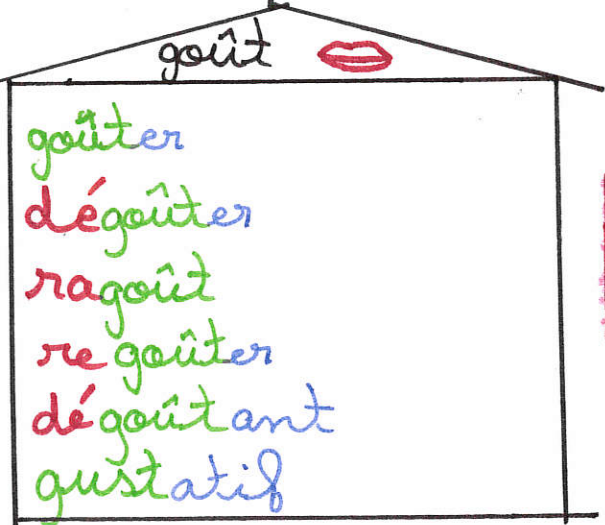 goût
goûter
dégoûter
ragoût
regoûter
dégoûtant
gustatif